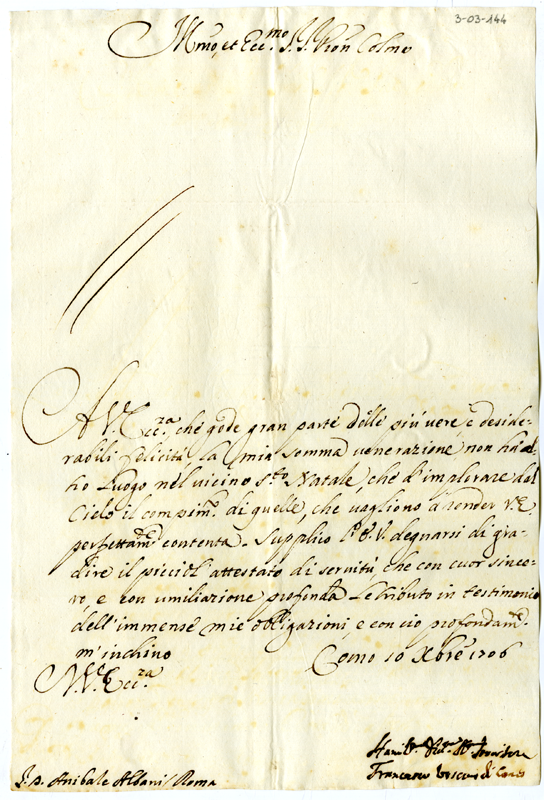 3-03-144
Illmo, et Ecc.mo S.r S.r Pron Colmo
A V.E. Ecc.za, che gode gran parte delle più vere, e deside-
rabili felicità, la mia somma venerazione non ha al-
tro Luogo nel vicino S.to Natale, che d'implorare dal
Cielo il compim.to di quelle, che vagliono à render V.E.
perfettam.te contenta. Supplico l'E.V. degnarsi di gra-
dire il picciol attestato di servitù, che con cuor since-
ro, e con umiliazione profonda Le tributo in testimonio
dell'immense mie obbligazioni, e con ciò profondam.te
m'inchino
Como 10 Xbre 1706
V.E. Ecc.za
S. D. Anibale Albani / Roma
Francesco Vescovo di Como